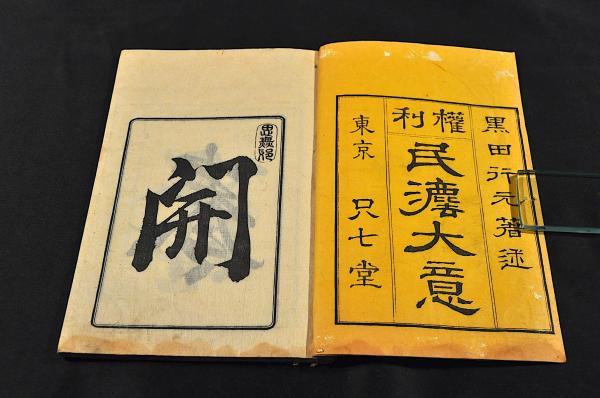 黒田行元著述
權利
民灋大意
東京 只七堂
開